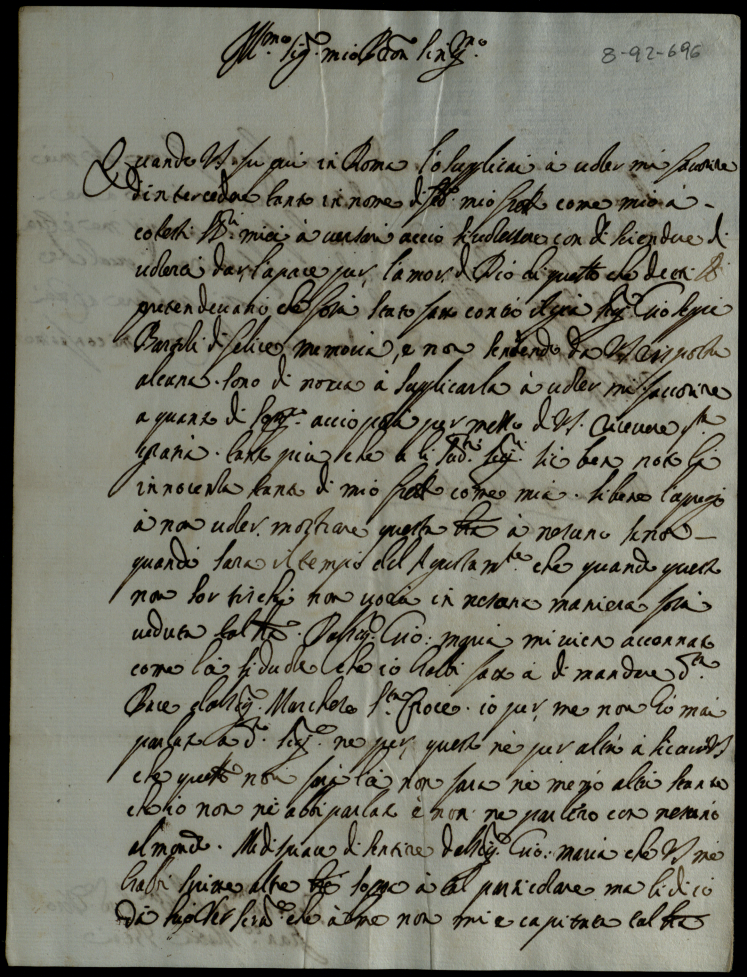 Ill.mo Sig.r mio P.ron Sin.g.mo
8-92-696
Quando VS. fu qui in Roma lo suplicai à voler mi favorire
d'intercedere tanto in nome di mio fratello come mio à
cotesti SS.ri miei à versari accio si volessero con di sciendere di
volerci dar la pace per l'amor di Dio di quello che detti SS.
pretendevano che fosse stato fatto contro il già Sig.r Gioseppe
di felice memoria, e non sentendo da VS. risposta
alcuna. sono di novo à suplicarla à voler mi favorire
a quanto di sop.ra accio possi per mezzo di VS. ricevere q.sta
gratia. tanto più che a li sud.ti Sig.ri sie ben noto l'
innocenza tanto di mio fratello come mia. si bene la prego
à non voler mostrare questa lra à nesuno sino
quando sara il tempo del Agustam.to che quando questo
non sortischi non voria in nesuna maniera fosse
veduta tal lra. Dal Sig.r Gio: maria mi vien accennato
come lei si dubita che io habbi fatto à dimandare d.ta
Pace dal Sig.r Marchese S.ta Croce. io per me non ho mai
parlato a d.o Sig.re ne per questo ne per altri à sicuro VS
che questo non sarà lei non sara ne meno altri stante
che io non ne abbi parlato e non ne parlero con nesuno
al mondo. Mi dispiace di sentire dal Sig.r Gio: maria che VS. me
habbi scritto altre lre sopra à tal particolare ma li dico
da suo che à me non mi e capitata tal lra